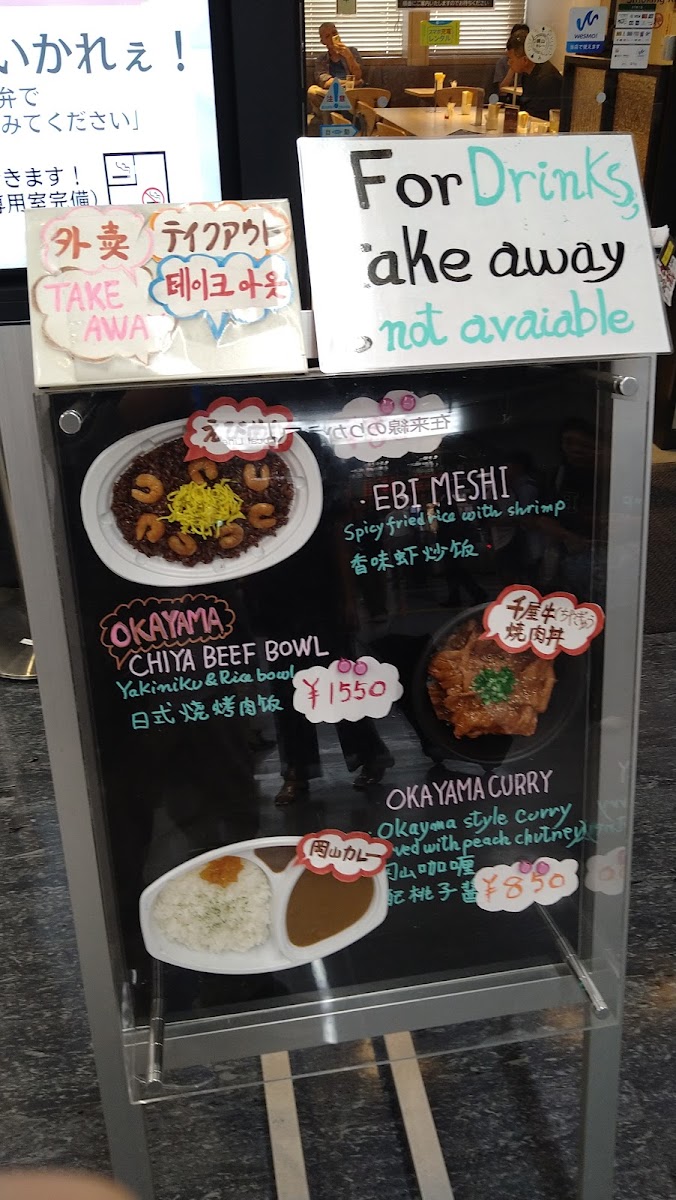 いかれぇ！
弁で
みてください」
きます！
専用室完備）
外卖
テイクアウト
TAKE
AWAY
테이크아웃
For Drinks,
ake away
not avaiable
在来線のりか
EBI MESHI
Spicy fried rice with shrimp
香味虾炒饭
OKAYAMA
CHIYA BEEF BOWL
Yakiniku & Rice bowl
日式烧烤肉饭
¥1550
千屋牛
焼肉丼
OKAYAMA CURRY
Okayama style curry
ved with peach chutney
岡山カレー
冈山咖喱
配桃子酱
¥850
WESMO!